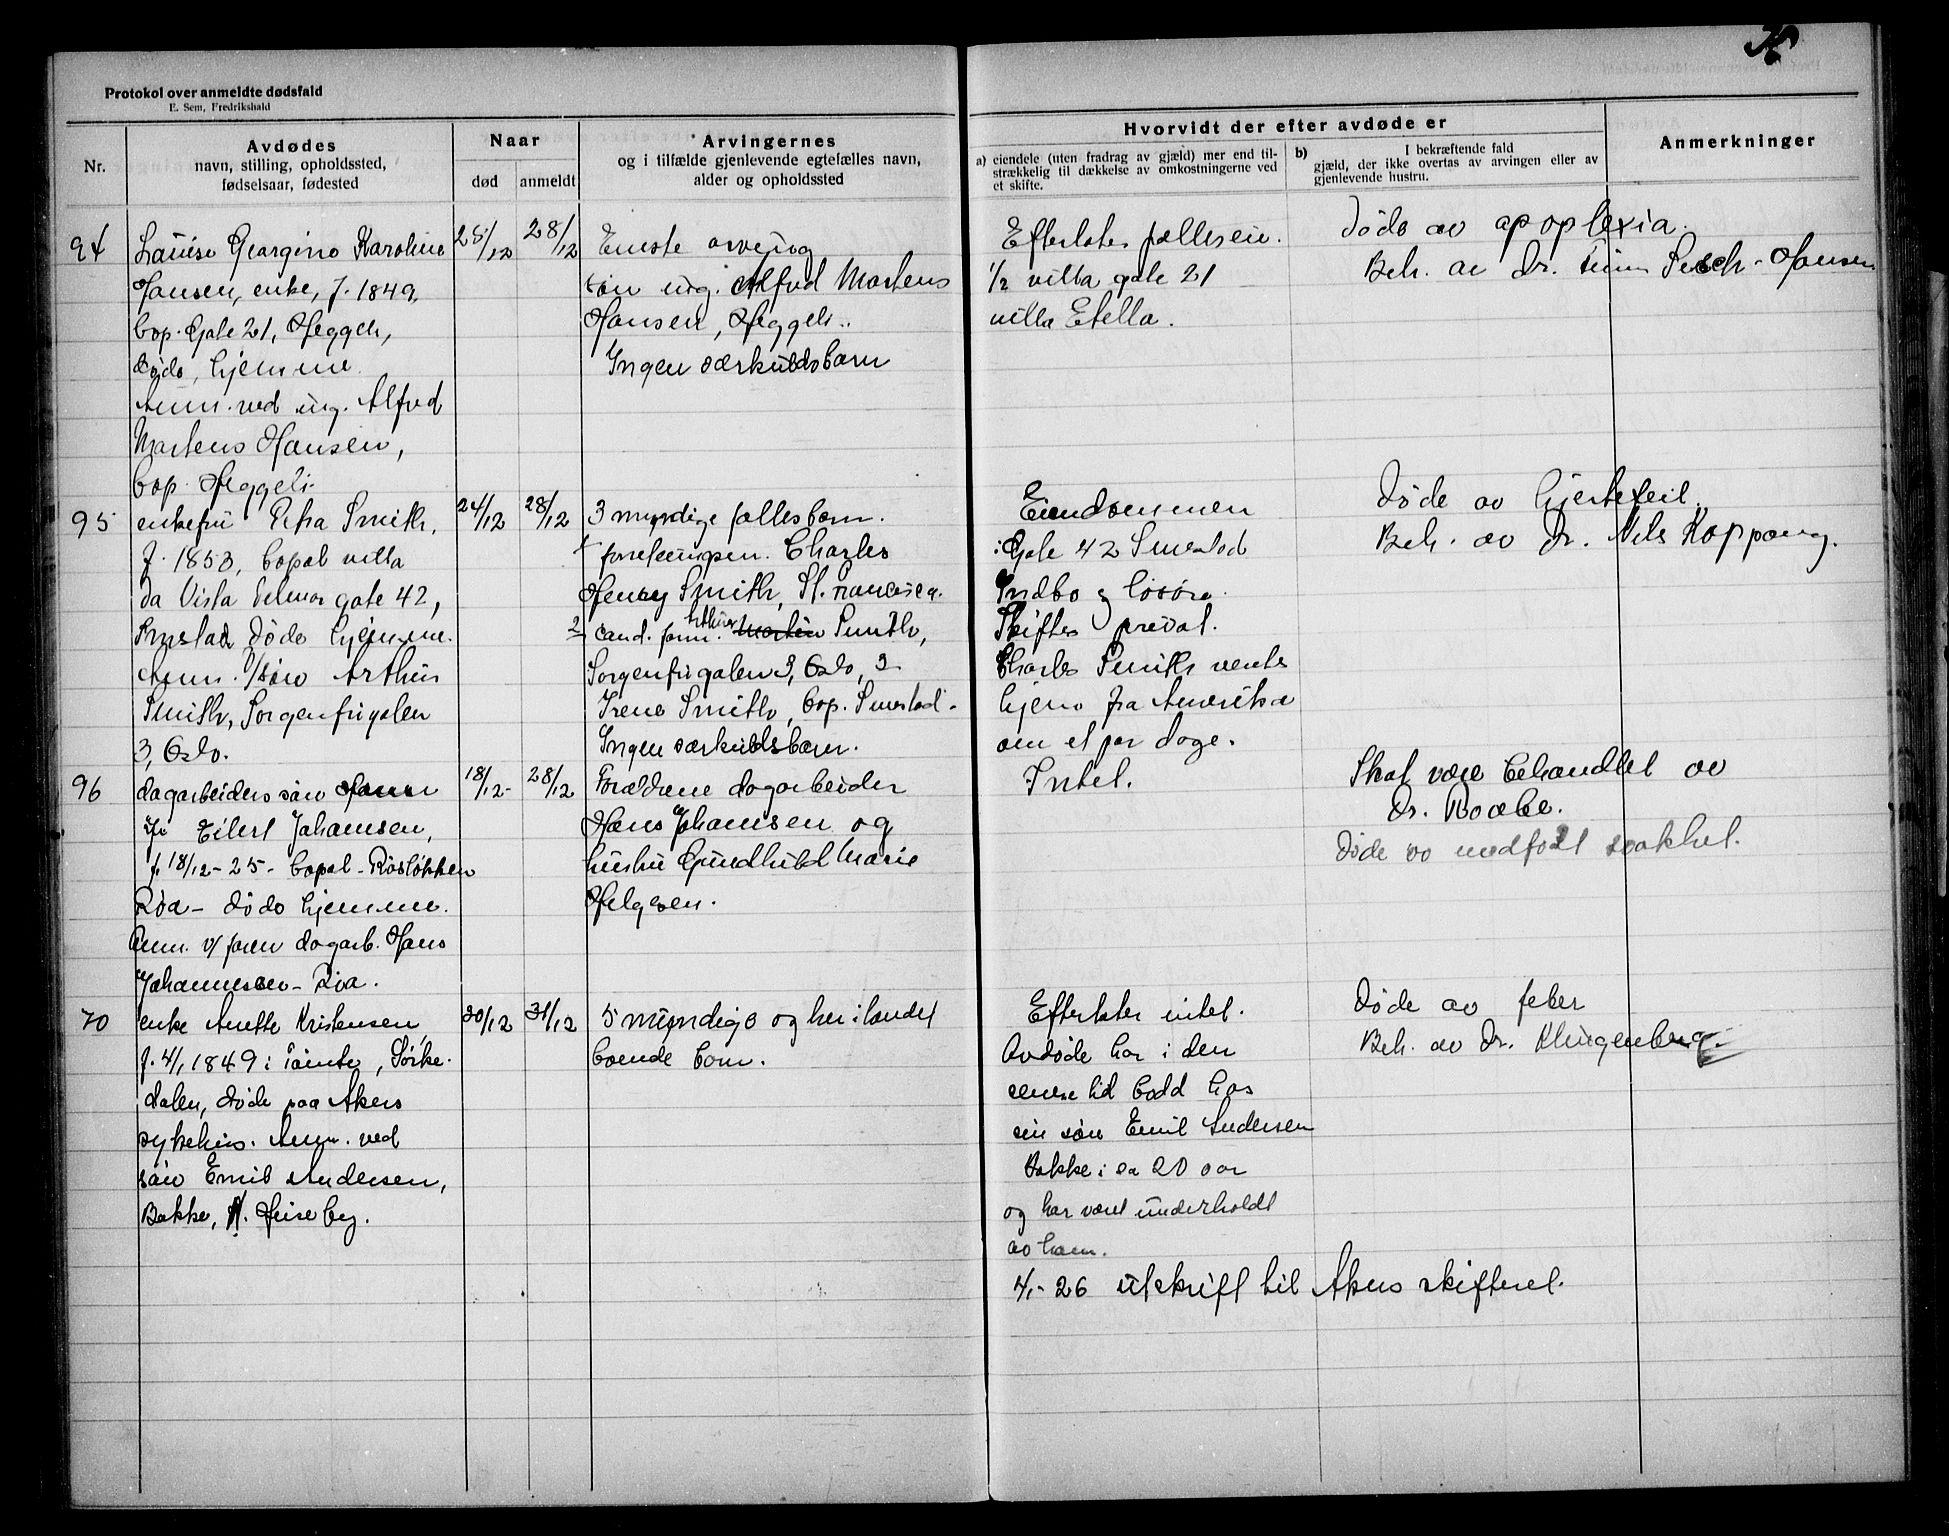 Protokol over anmeldte dødsfald
E. Sem, Fredrikshald
Nr.
Avdødes
navn, stilling, opholdssted,
fødselsaar, fødested
Naar
død
anmeldt
Arvingernes
og i tilfælde gjenlevende egtefælles navn,
alder og opholdssted
Hvorvidt der efter avdøde er
a) eiendele (uten fradrag av gjæld) mer end til-
strækkelig til dækkelse av omkostningerne ved
et skifte.
b) I bekræftende fald
gjæld, der ikke overtas av arvingen eller av
gjenlevende hustru.
Anmerkninger
94
Louise Georgine Karoline
Hansen, enke, f. 1849,
bop. Gate 21, Heggeli,
døde hjemme.
Anm. ved ing. Alfred
Martens Hansen,
bop. Heggeli.
25/12
28/12
Eneste arving
søn ing. Alfred Martens
Hansen, Heggeli.
Ingen særkuldsbarn
Efterlater fælleseie.
1/2 villa gate 21
villa Etella.
Døde av apoplexia.
Beh. av Dr. Hansen
95
enkefru Petra Smith,
f. 1853, bopæl villa
Da Vista gate 42,
Smestad døde hjemme.
Anm. v/søn Arthur
Smith, Sorgenfrigaten
3, Oslo.
24/12
28/12
3 myndige fællesbarn.
1 Charles
Henry Smith, St. Francisco.
2 cand. farm. Arthur Smith,
Sorgenfrigaten 3, Oslo, 3
Irene Smith, bop. Smestad.
Ingen særkuldsbarn.
Eiendommen
i Gate 42 Smestad
Indbo og løsøre.
Skiftes privat.
Charles Smith ventes
hjem fra Amerika
om et par dage.
Døde av hjertefeil.
Beh. av Dr. Nils Koppang.
96
dagarbeiders søn
Eilert Johansen,
f. 18/12-25- bopæl - Røsløkken
Røa - døde hjemme.
Anm. v/ faren dagarb. Hans
Johannessen - Røa.
18/12-
28/12
Forældrene dagarbeider
Hans Johansen og
hustru Gundhild Marie
Helgesen.
Intet.
Skal være behandlet av
Dr. Raabe.
Døde av medfødt svakhet.
70
enke Anette Kristensen
f. 4/1 1849 i Tømte, Sørke-
dalen, døde paa Akers
sykehus. Anm. ved
søn Emil Andersen,
Bakke, Heiseby.
30/12
31/12
5 myndige og her i landet
boende barn.
Efterlater intet.
Avdøde har i den
senere tid bodd hos
sin søn Emil Andersen
Bakke i ca 20 aar
og har været underholdt
av ham.
4/1-26 utskrift til Akers skifteret.
Døde av feber
Beh. av Dr. Klingenberg.